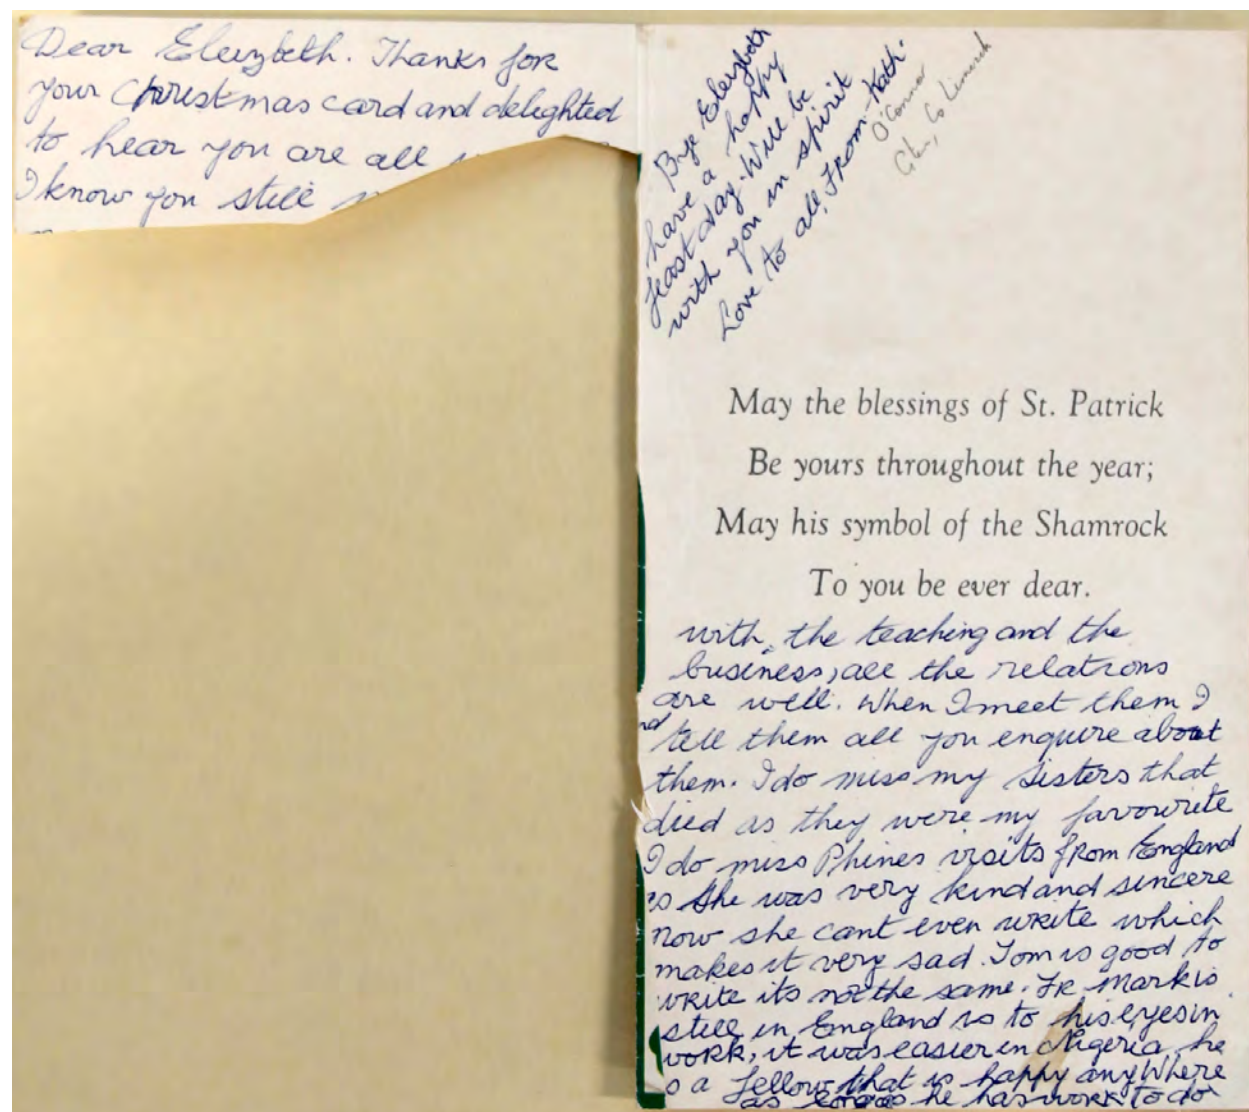 Dear Eleizbeth. Thanks for
your Christmas card and delighted
to hear you are all
I know you still
Bye Eleizbeth
have a happy
feast day. Will be
with you in spirit
Love to all, From Kath.
O'Connor
Glin, Co Limerick
May the blessings of St. Patrick
Be yours throughout the year;
May his symbol of the Shamrock
To you be ever dear.
with, the teaching and the
business, all the relations
are well. When I meet them I
tell them all you enquire about
them. I do miss my sisters that
died as they were my favourite
I do miss Phines visits from England
as she was very kind and sincere
now she cant even write which
makes it very sad. Tom is good to
write its not the same. Fr. Mark is
still in England up to his eyes in
work, it was easier in Nigeria, he
is a fellow that is happy anywhere
as long as he has work to do